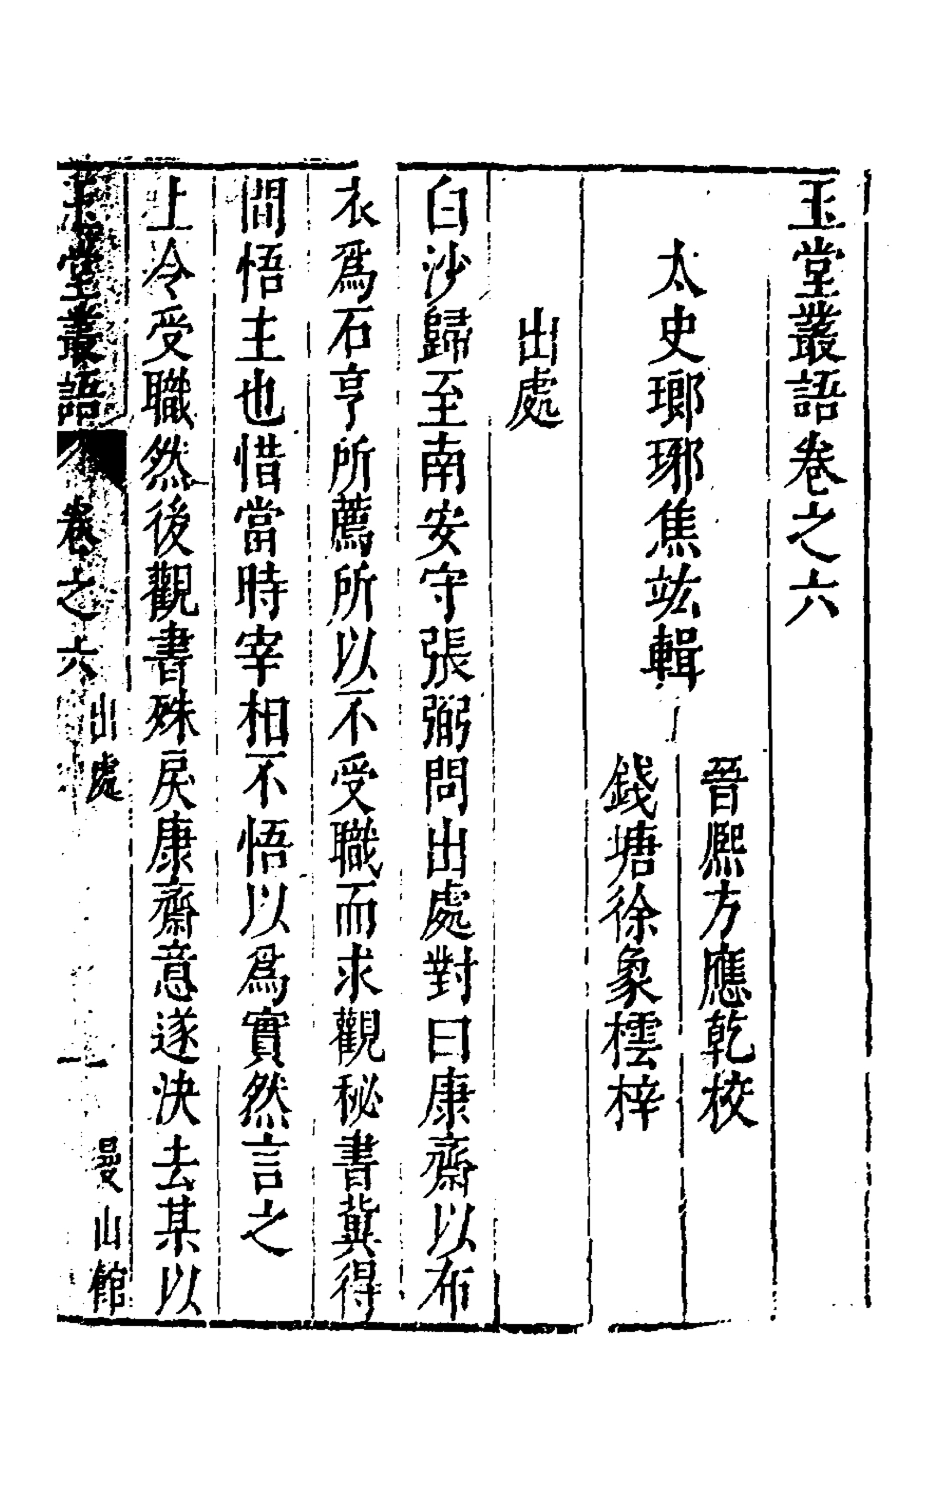 玉堂叢語卷之六
太史瑯琊焦竑輯
晉熈方應乾校
錢塘徐象橒梓
出處
白沙歸至南安守張弼問出處對曰康齋以布
衣爲石亨所薦所以不受職而求觀秘書冀得
間悟主也惜當時宰相不悟以爲實然言之
上令受職然後觀書殊戾康齋意遂決去某以
玉堂叢語 卷之六 出處 一 曼山館